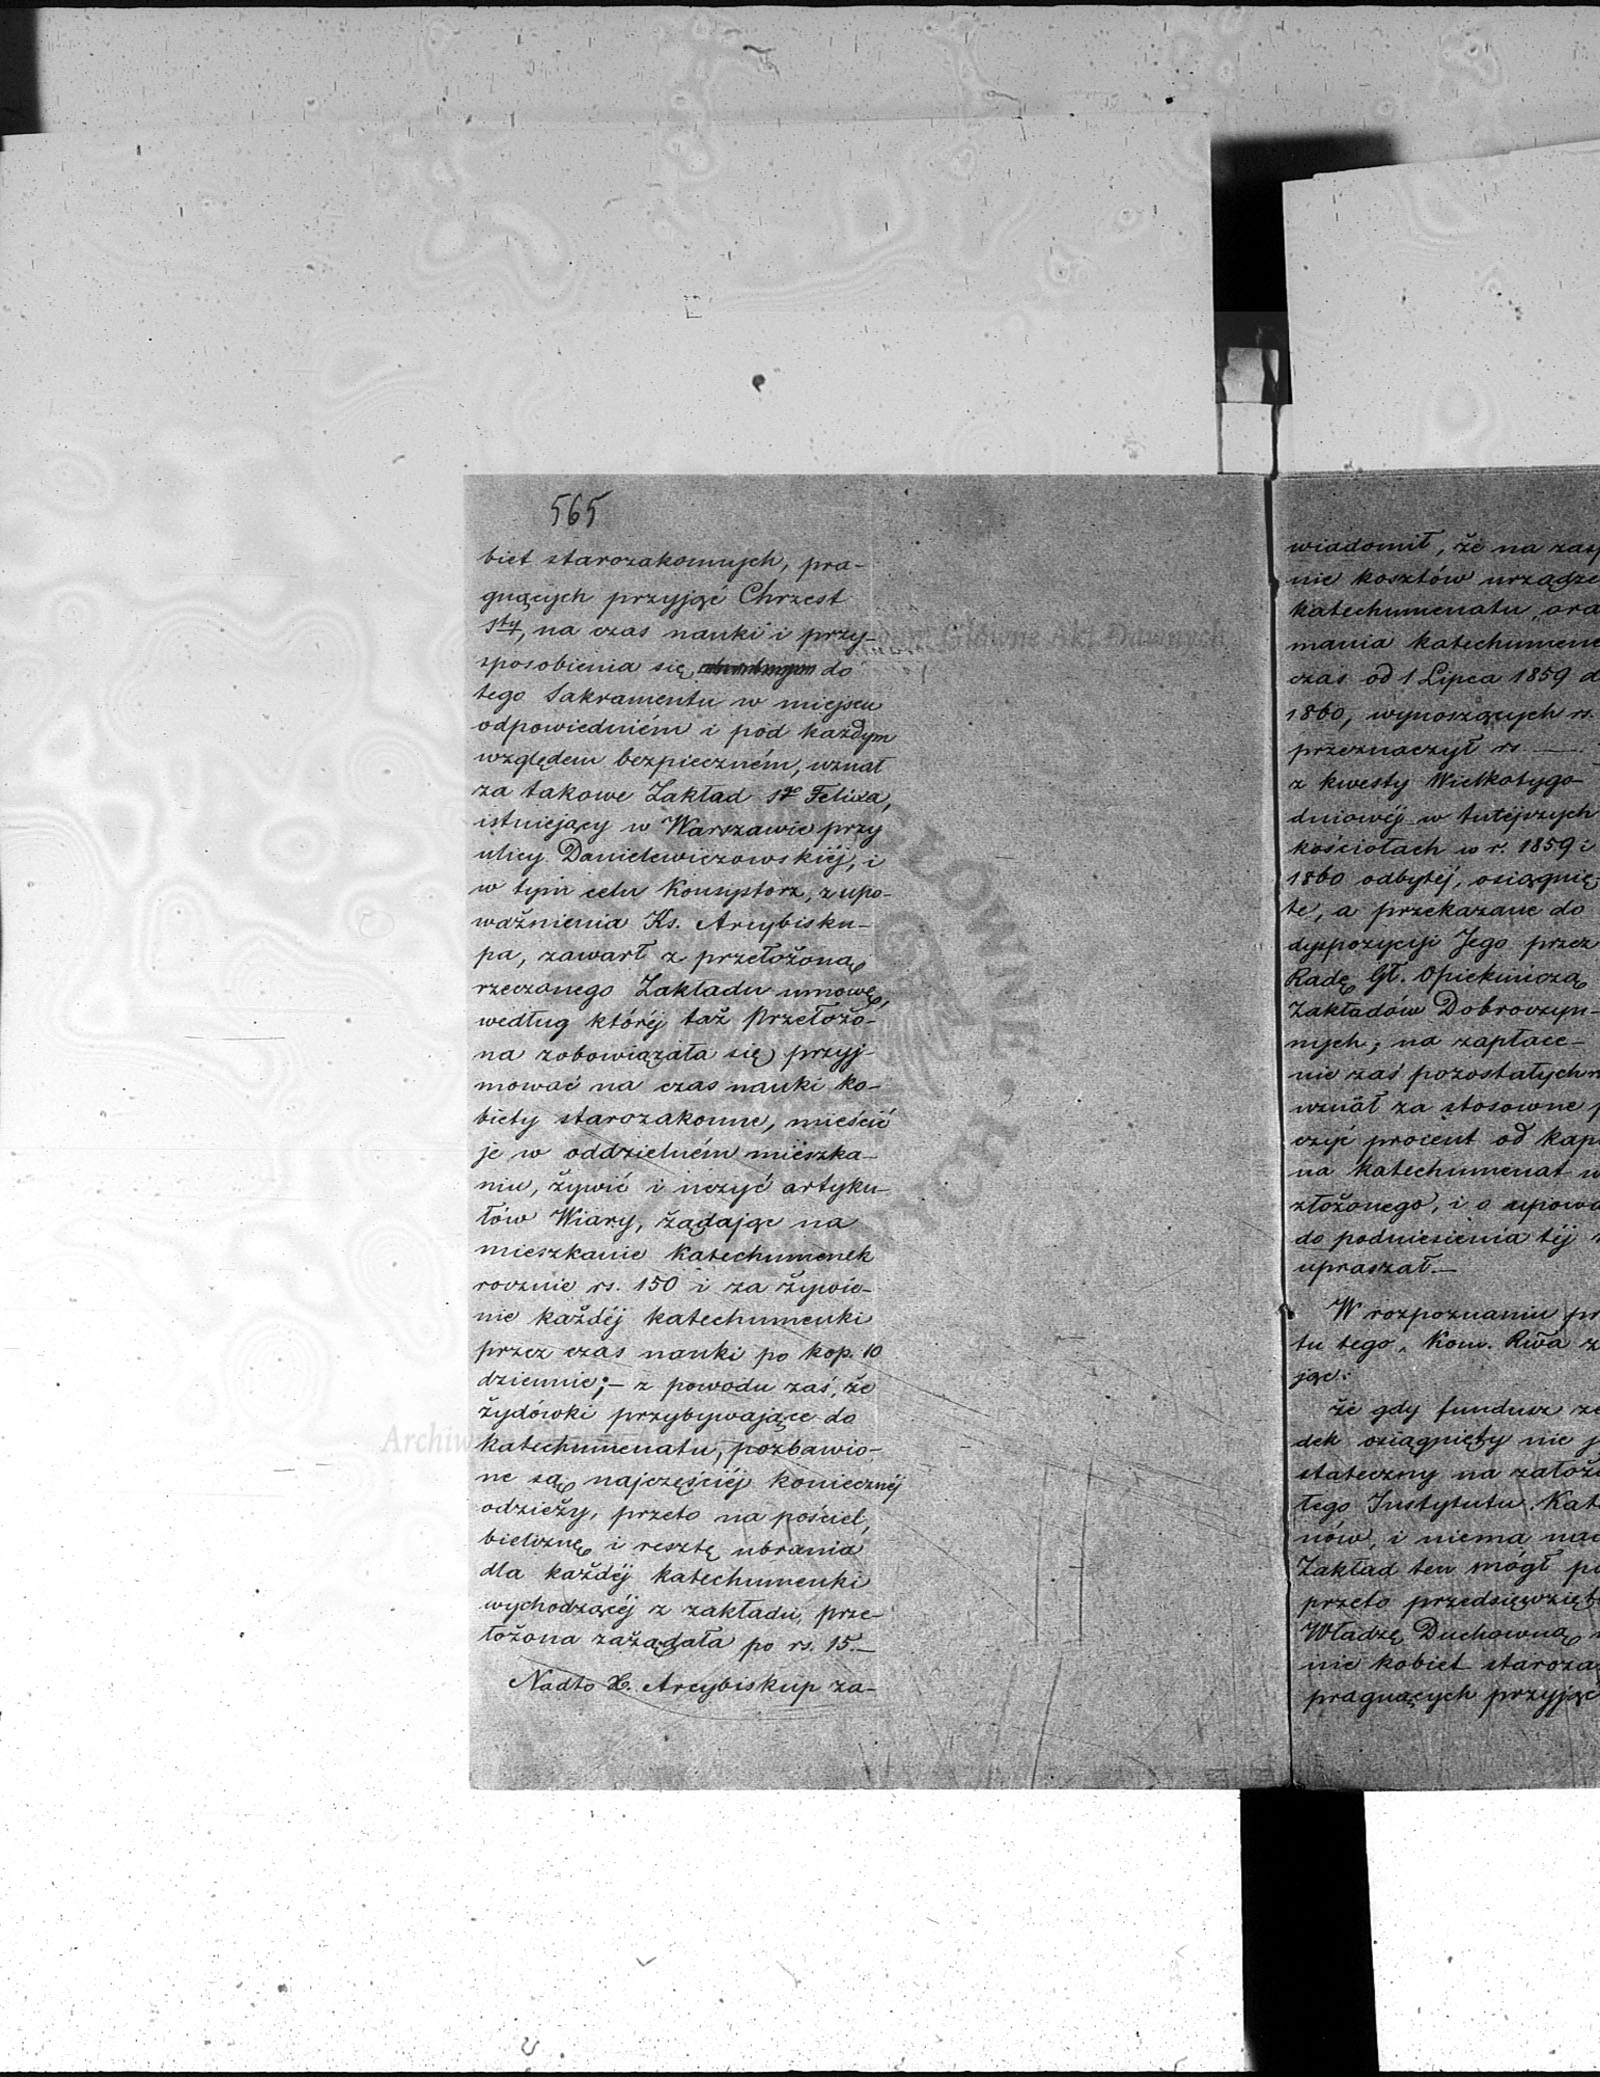 565
biet starozakonnych, pra-
gnących przyjąć Chrzest
Sty, na czas nauki i przy-
sposobienia się do
tego Sakramentu w miejscu
odpowiedniém i pod każdym
względem bezpieczném, uznał
za takowe Zakład Sgo Felixa,
istniejący w Warszawie przy
ulicy Danielewiczowskiéj, i
w tym celu Konsystorz, z upo-
ważnienia Ks. Arcybisku-
pa, zawarł z przełożoną
rzeczonego Zakładu umowę,
według któréj taż Przełożo-
na zobowiązała się przyj-
mować na czas nauki ko-
biety starozakonne, mieścić
je w oddzielném mieszka-
niu, żywić i uczyć artyku-
łów Wiary, żądając na
mieszkanie katechumenek
rocznie rs. 150 i za żywie-
nie każdéj katechumenki
przez czas nauki po kop. 10
dziennie; – z powodu zaś, że
żydówki przybywające do
katechumenatu, pozbawio-
ne są najczęściéj koniecznéj
odzieży, przeto na pościel,
bieliznę i resztę ubrania
dla każdéj katechumenki
wychodzącéj z zakładu, prze-
łożona zażądała po rs. 15.—
Nadto X. Arcybiskup za-
wiadomił, że na zasp
nie kosztów urządze
katechumenatu ora
mania katechumene
czas od 1 Lipca 1859 d
1860, wynoszących rs.
przeznaczył rs —
z kwesty Wielkotygo-
dniowéj w tutéjszych
kościołach w r. 1859 i
1860 odbytéj, osiągnię-
te, a przekazane do
dyspozycyi Jego przez
Radę Gł. Opiekuńczą
Zakładów Dobroczyn-
nych; na zapłace-
nie zaś pozostałych
uznał za stosowne p
czyć procent od kapi
na katechumenat w
złożonego, i o upowa
do podniesienia téj
upraszał.—
W rozpoznaniu pr
tu tego, Kom. Rwa z
jąc:
że gdy fundusz ze
dek osiągnięty nie j
stateczny na założe
tego Instytutu Kate
nów, i niema nad
Zakład ten mógł po
przeto przedsięwzięte
Władzę Duchowną
nie kobiet staroza
pragnących przyjąć
Główne Akt Dawnych
Archiw